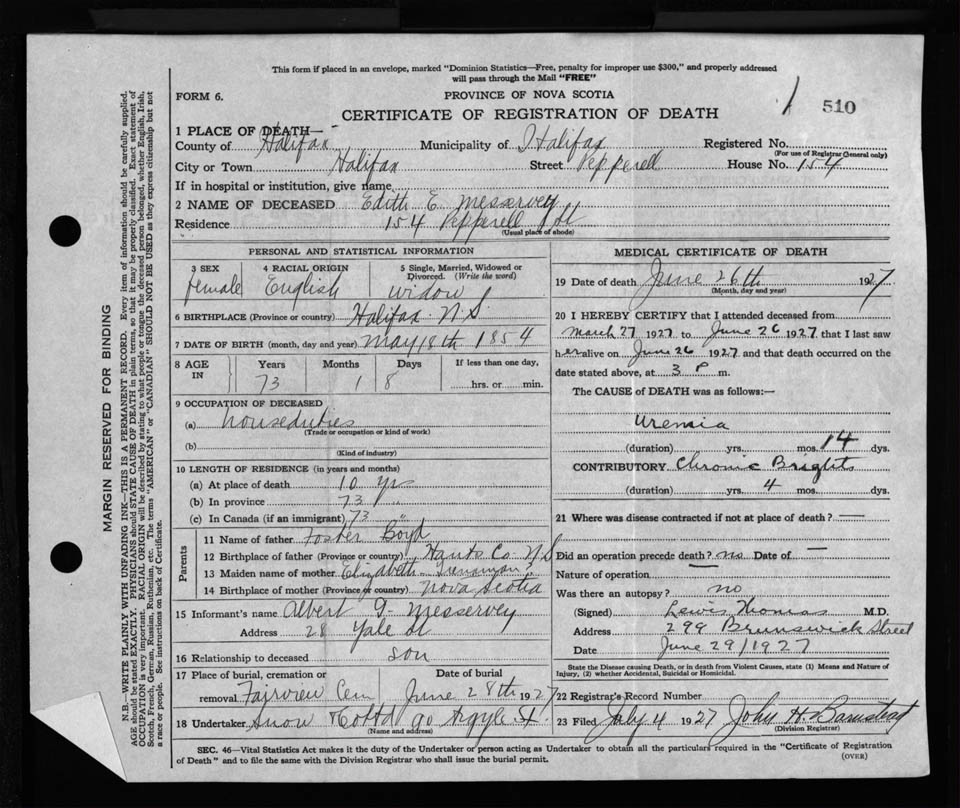 This form if placed in an envelope, marked "Dominion Statistics—Free, penalty for improper use $300," and properly addressed
will pass through the Mail "FREE"
FORM 6.
PROVINCE OF NOVA SCOTIA
1 510
CERTIFICATE OF REGISTRATION OF DEATH
1 PLACE OF DEATH—
County of Halifax Municipality of Halifax Registered No.
(For use of Registrar General only)
City or Town Halifax Street Pepperell House No. 154
If in hospital or institution, give name
2 NAME OF DECEASED Edith E. Messervey
Residence 154 Pepperell St
(Usual place of abode)
PERSONAL AND STATISTICAL INFORMATION
3 SEX 4 RACIAL ORIGIN 5 Single, Married, Widowed or
Divorced. (Write the word)
Female English widow
6 BIRTHPLACE (Province or country) Halifax N.S.
7 DATE OF BIRTH (month, day and year) May 18th 1854
8 AGE Years Months Days If less than one day,
IN 73 1 8 hrs. or min.
9 OCCUPATION OF DECEASED
(a) houseduties
(Trade or occupation or kind of work)
(b)
(Kind of industry)
10 LENGTH OF RESIDENCE (in years and months)
(a) At place of death 10 yrs
(b) In province 73 "
(c) In Canada (if an immigrant) 73
Parents
11 Name of father Foster Boyd
12 Birthplace of father (Province or country) Hants Co. N.S
13 Maiden name of mother Elizabeth
14 Birthplace of mother (Province or country) Nova Scotia
15 Informant's name Albert G. Messervey
Address 28 Yale St
16 Relationship to deceased son
17 Place of burial, cremation or Date of burial
removal Fairview Cem June 28th 1927
18 Undertaker Snow Co Ltd 90 Argyle St.
(Name and address)
MEDICAL CERTIFICATE OF DEATH
19 Date of death June 26th 1927
(Month, day and year)
20 I HEREBY CERTIFY that I attended deceased from
March 27 1927 to June 26 1927 that I last saw
her alive on June 26 1927 and that death occurred on
date stated above, at 3 P m.
The CAUSE of DEATH was as follows:—
Uremia
(duration) yrs. mos. 14 dys.
CONTRIBUTORY Chronic Brights
(duration) 4 yrs. mos. dys.
21 Where was disease contracted if not at place of death? —
Did an operation precede death? no Date of —
Nature of operation —
Was there an autopsy? no
(Signed) Lewis Thomas M.D.
Address 299 Brunswick Street
Date June 29/1927
State the Disease causing Death, or in death from Violent Causes, state (1) Means and Nature of
Injury, (2) whether Accidental, Suicidal or Homicidal.
22 Registrar's Record Number
23 Filed July 4 1927 John H. Barnstead
(Division Registrar)
SEC. 46—Vital Statistics Act makes it the duty of the Undertaker or person acting as Undertaker to obtain all the particulars required in the "Certificate of Registration
of Death" and to file the same with the Division Registrar who shall issue the burial permit.
(OVER)
MARGIN RESERVED FOR BINDING
N.B.—WRITE PLAINLY WITH UNFADING INK—THIS IS A PERMANENT RECORD. Every item of information should be carefully supplied.
AGE should be stated EXACTLY. PHYSICIANS should STATE CAUSE OF DEATH in plain terms, so that it may be properly classified. Exact statement of
OCCUPATION is very important. RACIAL ORIGIN will be described by stating to what people or tongue the deceased person belonged, whether English, Irish,
Scotch, French, German, Russian, Ruthenian, etc. The terms "AMERICAN" or "CANADIAN" SHOULD NOT BE USED as they express citizenship but not
a race or people. See instructions on back of Certificate.